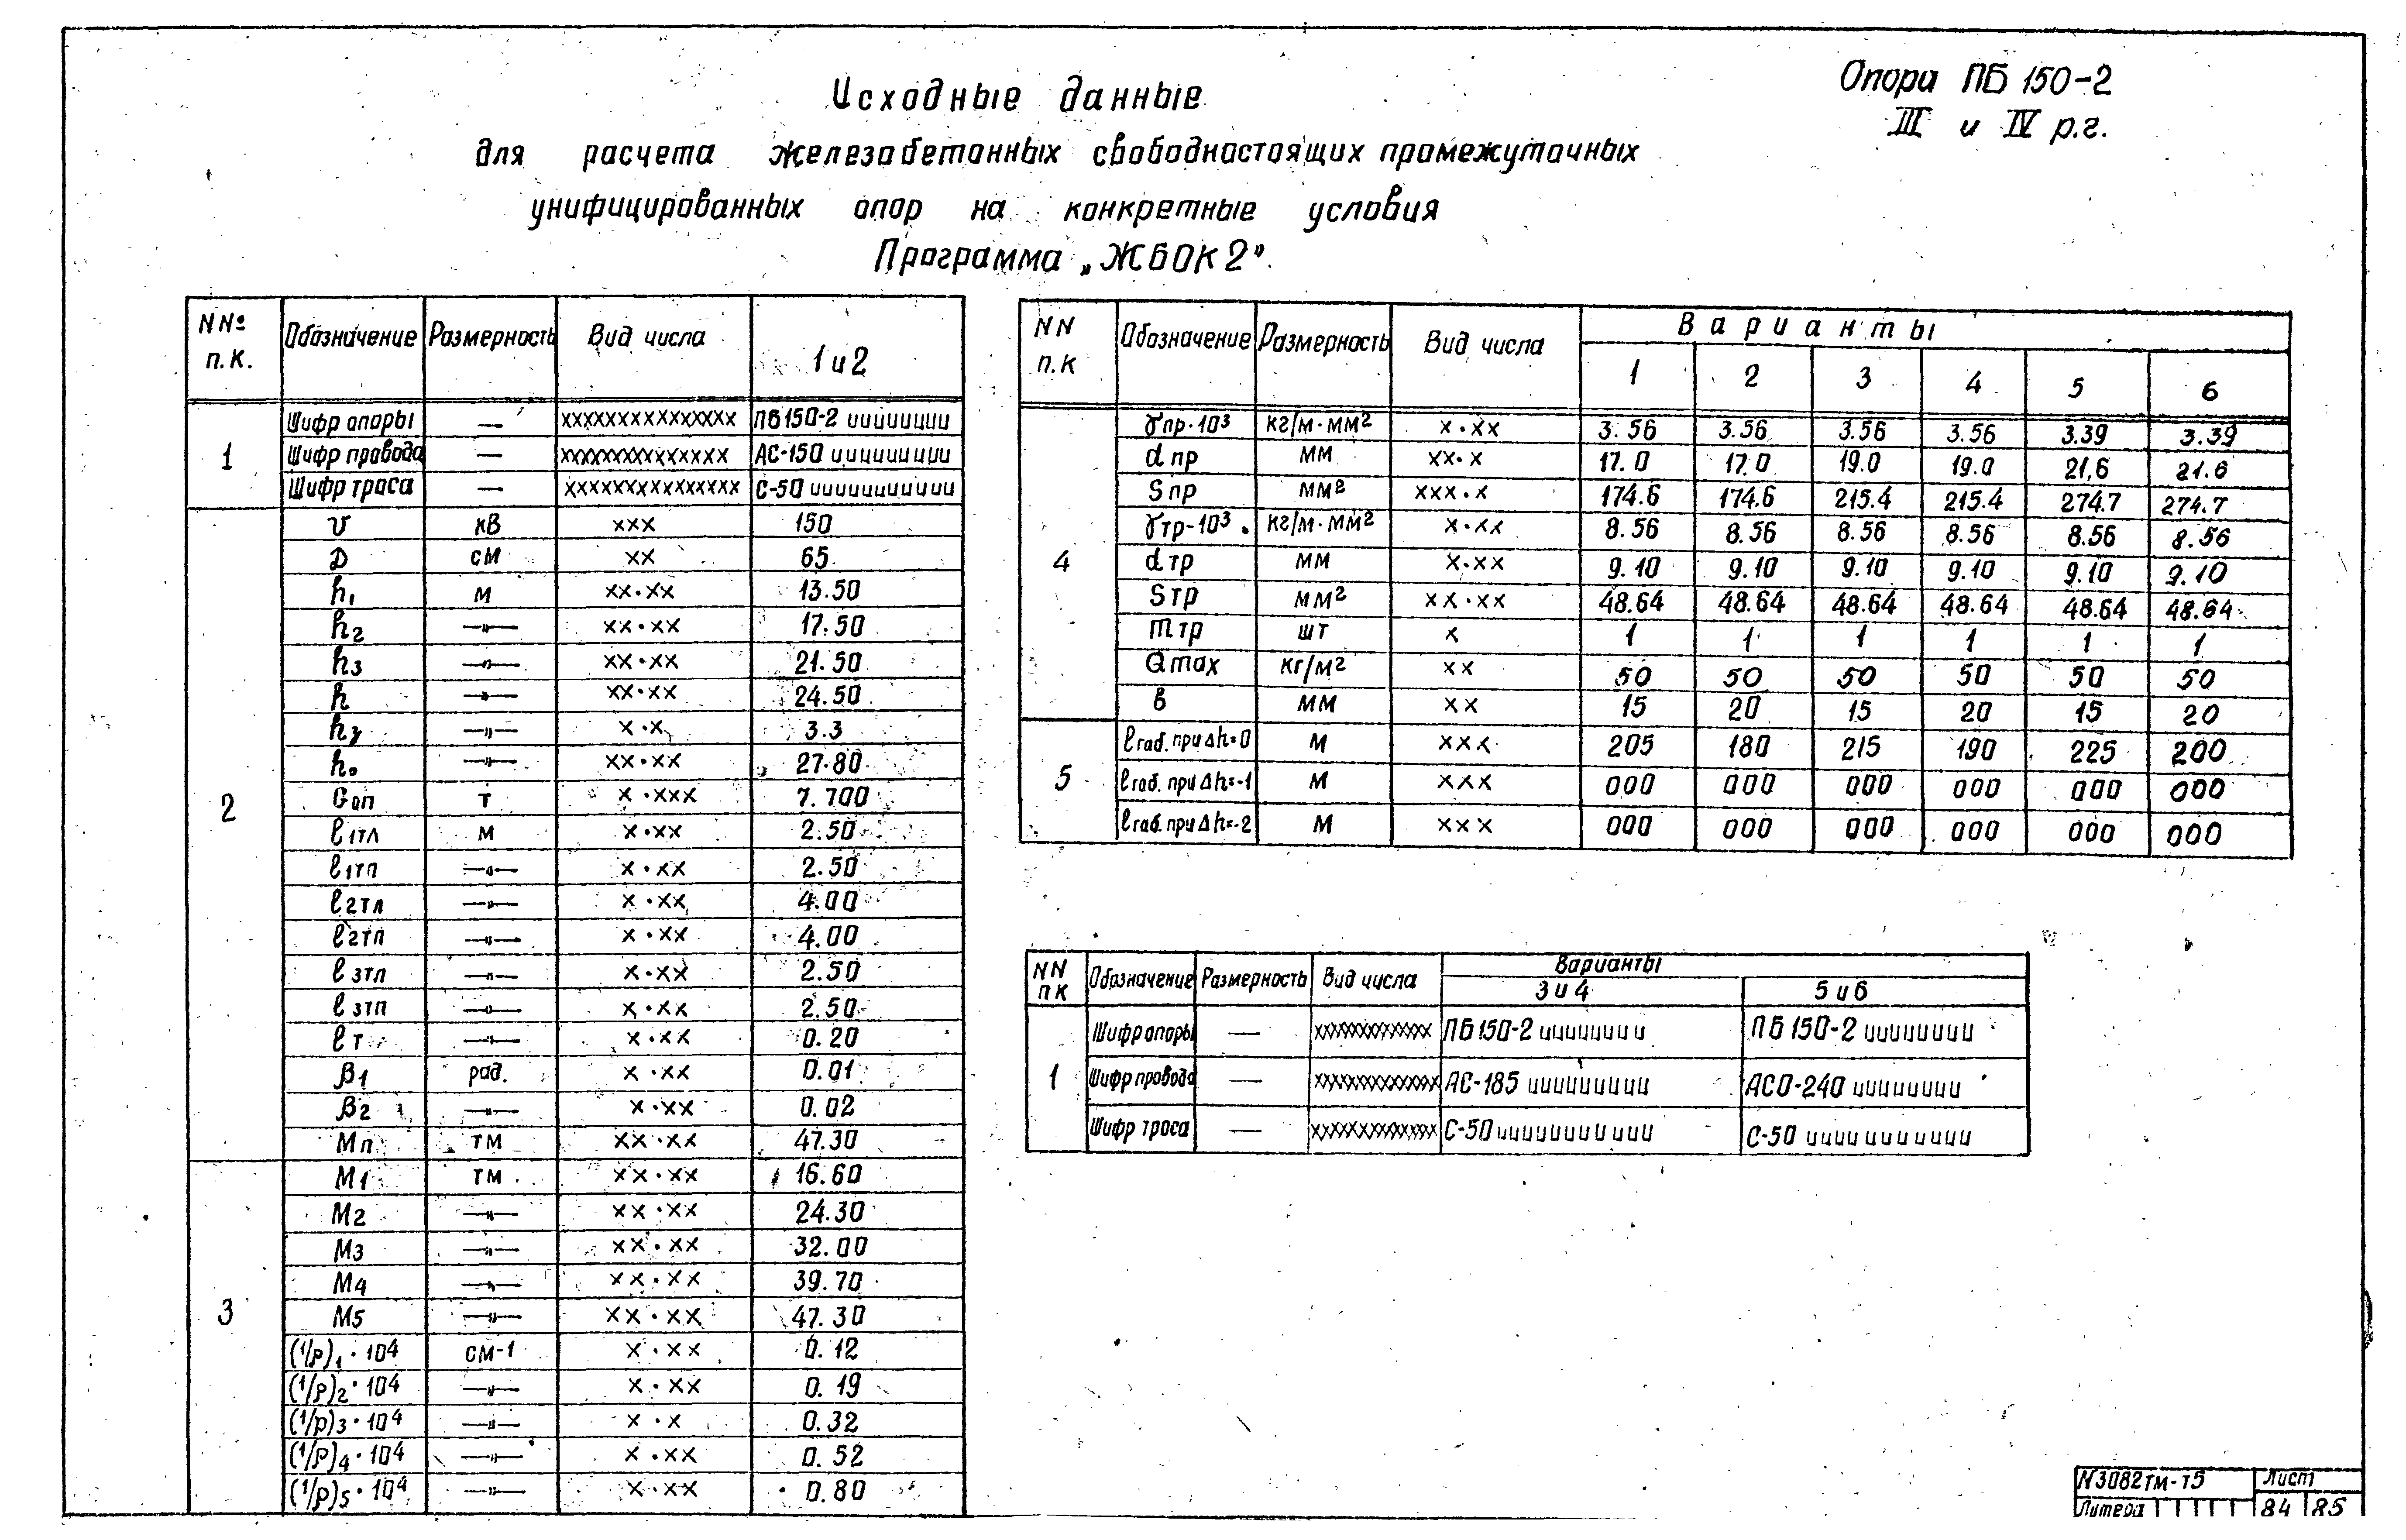 Опора ПБ 150-2
III и IV р.г.
Исходные данные
для расчета железобетонных свободностоящих промежуточных
унифицированных опор на конкретные условия
Программа „ЖБОК2".
N№ п.к. Обозначение Размерность Вид числа 1 и 2
1 Шифр опоры — xxxxxxxxxxxxxxx ПБ150-2 шшшш
Шифр провода — xxxxxxxxxxxxxxx АС-150
Шифр троса — xxxxxxxxxxxxxxx С-50
2 U кВ xxx 150
D см xx 65
h1 м xx.xx 13.50
h2 —"— xx.xx 17.50
h3 —"— xx.xx 21.50
h —"— xx.xx 24.50
hз —"— x.x 3.3
h₀ —"— xx.xx 27.80
Gоп т x.xxx 7.700
ℓ1тл м x.xx 2.50
ℓ1тп —"— x.xx 2.50
ℓ2тл —"— x.xx 4.00
ℓ2тп —"— x.xx 4.00
ℓ3тл —"— x.xx 2.50
ℓ3тп —"— x.xx 2.50
ℓт —"— x.xx 0.20
β1 рад. x.xx 0.01
β2 —"— x.xx 0.02
Mп тм xx.xx 47.30
3 M1 тм xx.xx 16.60
M2 —"— xx.xx 24.30
M3 —"— xx.xx 32.00
M4 —"— xx.xx 39.70
M5 —"— xx.xx 47.30
(1/ρ)1·10⁴ см-1 x.xx 0.12
(1/ρ)2·10⁴ —"— x.xx 0.19
(1/ρ)3·10⁴ —"— x.x 0.32
(1/ρ)4·10⁴ —"— x.xx 0.52
(1/ρ)5·10⁴ —"— x.xx 0.80
NN п.к Обозначение Размерность Вид числа Варианты
1 2 3 4 5 6
4 γпр·10³ кг/м·мм² x.xx 3.56 3.56 3.56 3.56 3.39 3.39
dпр мм xx.x 17.0 17.0 19.0 19.0 21,6 21.6
Sпр мм² xxx.x 174.6 174.6 215.4 215.4 274.7 274.7
γтр-10³ кг/м·мм² x.xx 8.56 8.56 8.56 8.56 8.56 8.56
dтр мм x.xx 9.10 9.10 9.10 9.10 9.10 9.10
Sтр мм² xx.xx 48.64 48.64 48.64 48.64 48.64 48.64
mтр шт x 1 1 1 1 1 1
Qmax кг/м² xx 50 50 50 50 50 50
в мм xx 15 20 15 20 15 20
5 ℓгаб. при Δh=0 м xxx 205 180 215 190 225 200
ℓгаб. при Δh=-1 м xxx 000 000 000 000 000 000
ℓгаб. при Δh=-2 м xxx 000 000 000 000 000 000
NN пк Обозначение Размерность Вид числа Варианты
3 и 4 5 и 6
1 Шифр опоры — xxxxxxxxxxxxx ПБ150-2 ПБ150-2
Шифр провода — xxxxxxxxxxxxx АС-185 АСО-240
Шифр троса — xxxxxxxxxxxxx С-50 С-50
N3082тм-т5 Лист
Литера 84 85